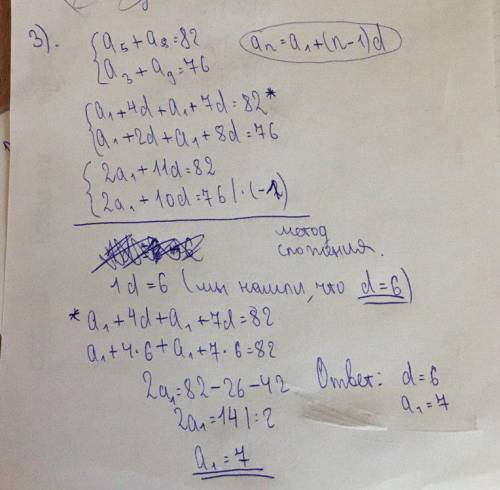 3). { a₅ + a₈ = 82   aₙ = a₁ + (n-1)d
{ a₃ + a₉ = 76
{ a₁ + 4d + a₁ + 7d = 82*
{ a₁ + 2d + a₁ + 8d = 76
{ 2a₁ + 11d = 82
{ 2a₁ + 10d = 76 | · (-1)
метод
сложения.
1d = 6 (мы нашли, что d = 6)
* a₁ + 4d + a₁ + 7d = 82
a₁ + 4·6 + a₁ + 7·6 = 82
2a₁ = 82 - 26 - 42   Ответ: d = 6
2a₁ = 14 | : 2   a₁ = 7
a₁ = 7